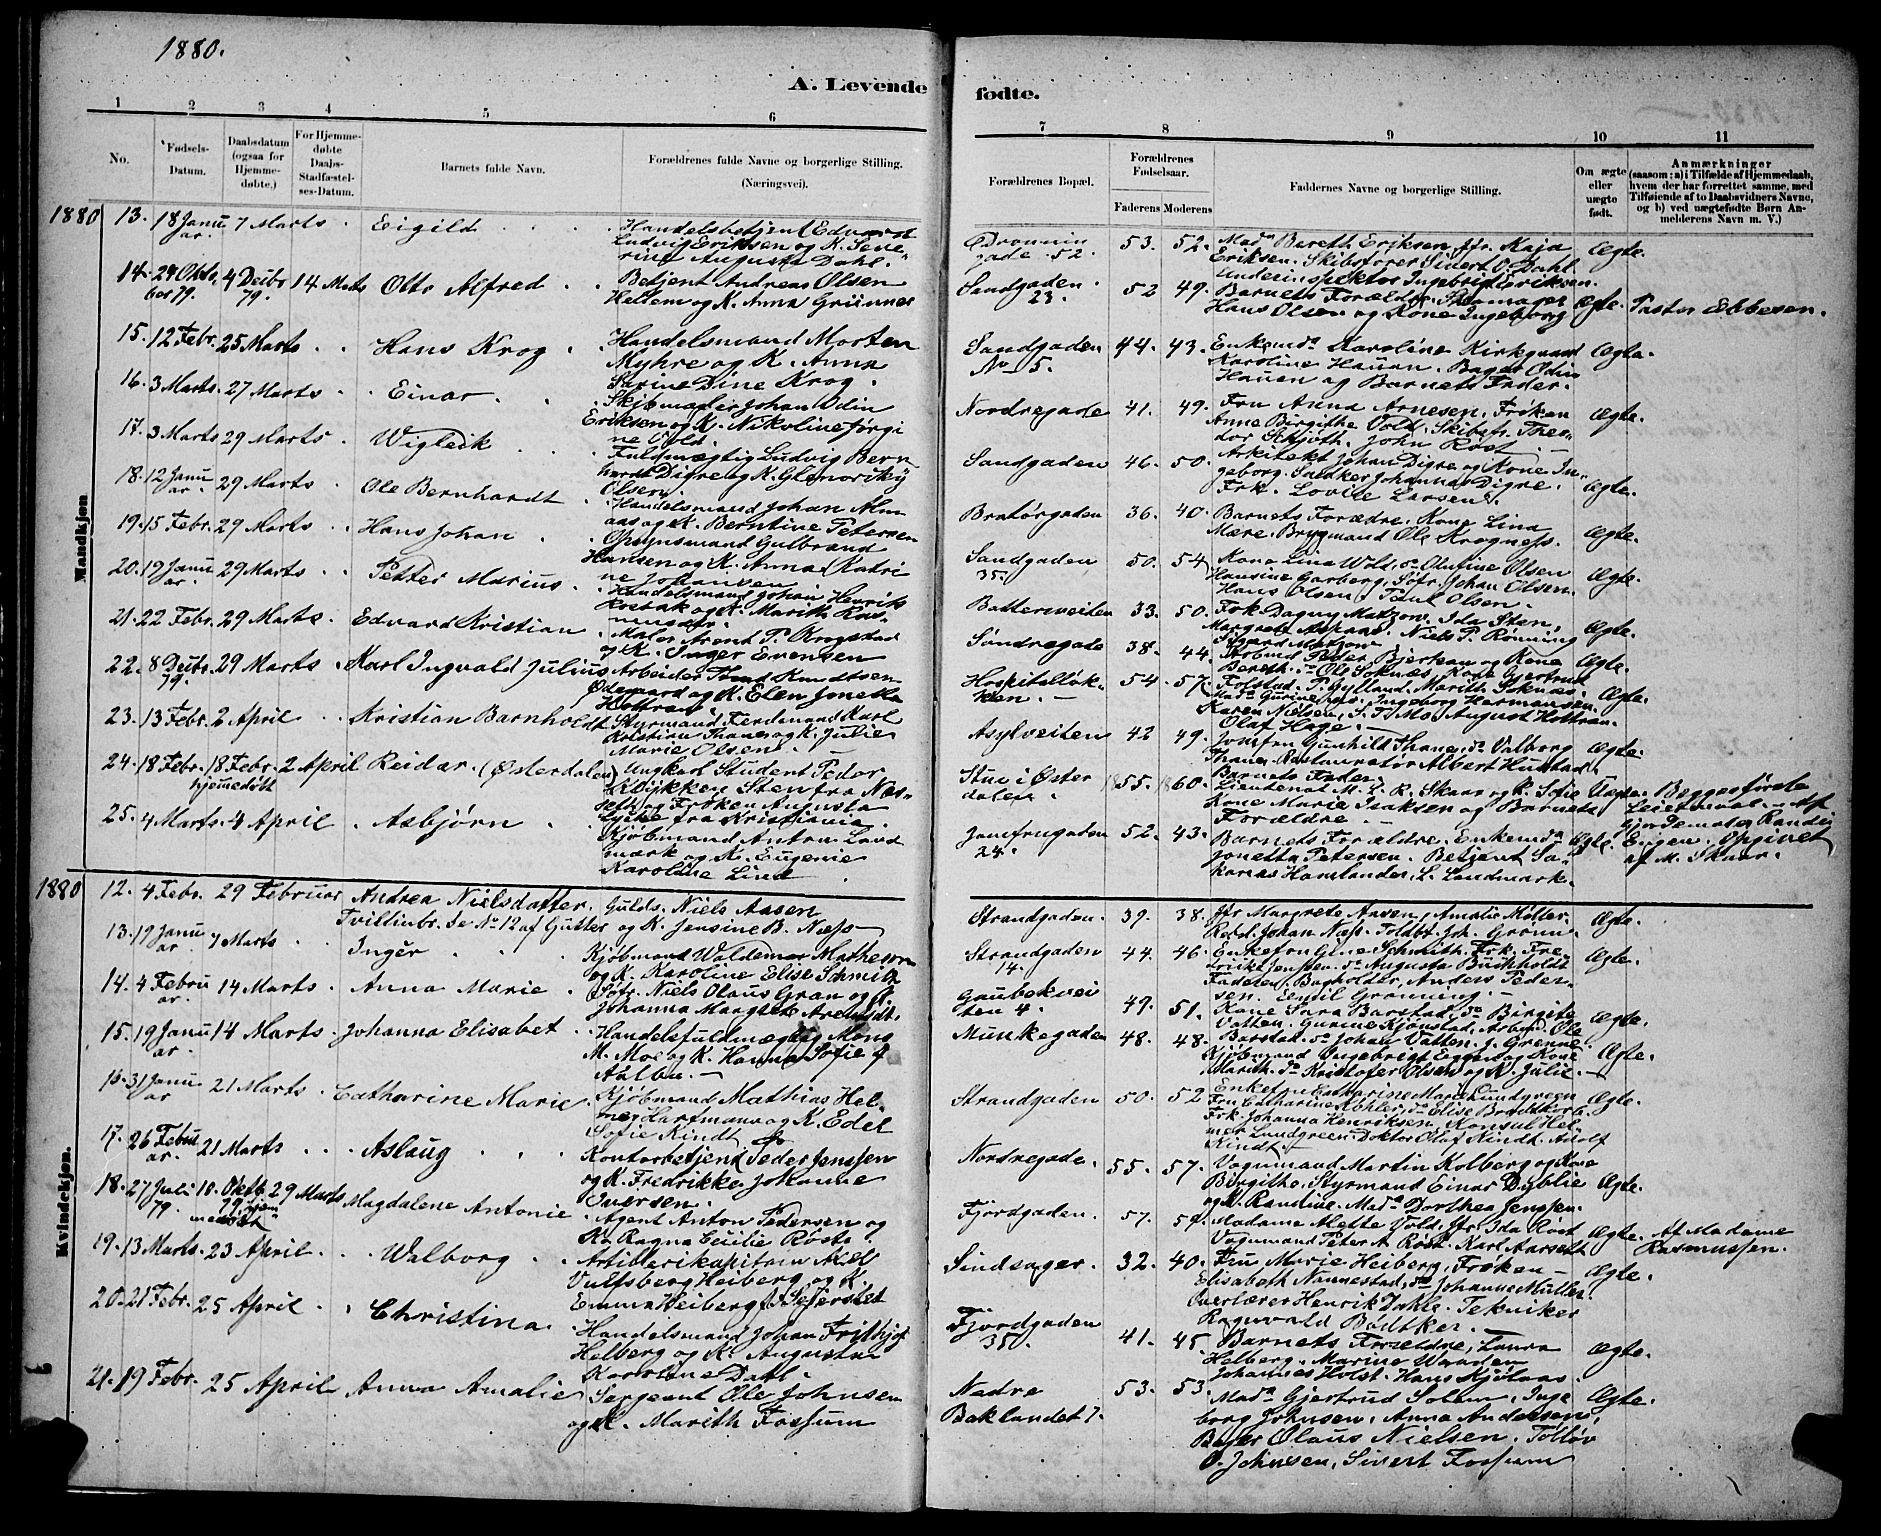 1880.
A. Levende fødte.
1 2 3 4 5 6 7 8 9 10 11
No.
Fødsels-Datum.
Daabsdatum (ogsaa for Hjemme-døbte.)
For Hjemme-døbte Daabs-Stadfæstel-ses-Datum.
Barnets fulde Navn.
Forældrenes fulde Navne og borgerlige Stilling. (Næringsvei).
Forældrenes Bopæl.
Forældrenes Fødselsaar.
Faderens Moderens
Faddernes Navne og borgerlige Stilling.
Om ægte eller uægte født.
Anmærkninger (saasom: a) i Tilfælde af Hjemmedaab, hvem der har forrettet samme, med Tilføiende af to Daabsvidners Navne, og b) ved uægtefødte Børn An-melderens Navn m. V.)
Mandkjøn
1880 13. 18 Janu ar. 7 Marts. Eigild
Handelsbetjent Edvard
Ludvig Eriksen og K. Seve
rine Augusta Dahl.
Dronnin
gade 52. 53. 52.
Mad. Bereth Eriksen, Jfr. Kaja
Eriksen. Skibsfører Sivert O. Dahl.
Ægte.
14. 29 Okto ber 79. 4 Decbr 79. 14 Marts Otto Alfred
Betjent Andreas Olsen
Hellem og K. Anna
Sandgaden
23. 52 49.
Barnets Forældre,
Hans Olsen og Kone Ingeborg
Ægte. Pastor Ebbesen.
15. 12 Febr. 25 Marts. Hans Krog
Handelsmand Morten
Myhre og K. Anna
Sandgaden
No 5. 44. 43.
Enkemd. Karoline Kirkgaard
Karoline Hauan. Bager Odin
Hauen og Barnets Fader.
Ægte.
16. 3 Marts. 27 Marts. Einar
Johan Odin
Eriksen og K. Nikoline Jørgi
ne Vold.
Nordregade 41. 49.
Fru Anna Arnesen, Frøken
Anne Birgithe Vold.
John Røst.
Ægte.
17. 3 Marts 29 Marts. Wigleik
Fuldmægtig Ludvig Bern
hardt Digre og K.
Olsen.
Sandgaden 46. 50.
Arkitekt Johan Digre og Kone In
geborg. Snedker Johannes Digre.
Frk. Lovise Larsen.
Ægte.
18. 12 Janu ar. 29 Marts. Ole Bernhardt
Handelsmand Johan Alm
aas og K. Berntine Petersen
Bratørgaden 36. 40.
Barnets Forældre, Kone Lina
Mære. Brygmand Ole Krogness.
Ægte.
19. 15 Febr. 29 Marts. Hans Johan
Opsynsmand Gulbrand
Hansen og K. Anna Katri
ne Johansen
Sandgaden
35. 50. 54
Kone Lina Wold, do Olufine Olsen
Hansine Garberg. Johan Olsen.
Hans Olsen, Paul Olsen.
Ægte.
20. 19 Janu ar. 29 Marts. Petter Marius
Handelsmand Johan Henrik
Rosbak og K. Marith Ras
mussen.
Batteriveiten 33. 50.
Frk. Dagny Matzow, Ida Sten,
Niels P. Rønning
Ægte.
21. 22 Febr. 29 Marts. Edvard Kristian
Maler Arent P. Krogstad
og K. Inger Evensen
Søndregade 38. 44.
Arbmd Peder Bjerkan og Kone
Bereth. do Ole Soknæs, Kone Gjertrud
Ægte
22. 8 Decbr. 79. 29 Marts. Karl Ingvald Julius
Arbeider Knudtsen
Ødegaard og K. Elen Jonetta
Hottran.
Hospitalløk-
ken. 54. 57.
P. Gylland. Marith Soknæs.
Mad. Ingeborg Hermansen.
Karen Nielsen, August Hottran.
Olaf Hage.
Ægte.
23. 13 Febr. 2 April. Kristian Barnholdt
Styrmand Ferdinand Karl
Kristian Thane og K. Julie
Marie Olsen.
Asylveiten 42 49.
Jomfru Gunhild Thane, do Valborg
Thane. Restauratør Albert Hustad.
Barnets Fader.
Ægte.
24. 18 Febr. 18 Febr. hjemmedøbt 2 April Reidar. (Østerdalen)
Ungkarl Student Peder
Sten fra Næs-
seth og Frøken Augusta
Lycke fra Kristiania.
Stue i Øster
dalen. 1855. 1860.
Lieutenat M. L. R. Skaar og K. Sofie
Kone Marie Isaksen og Barnets
Forældre.
Uægte. Begges første
Leiermaal. Af
Gjordemoder Randi
Engen. Opgivet
af M. Skaar.
25. 4 Marts. 4 April. Asbjørn
Kjøbmand Anton Land
mark og K. Eugenie
Karoline Lind
Jomfrugaden
24. 52. 43.
Barnets Forældre. Enkemd
Jonetta Petersen. Betjent Za-
karias Hanslander, L. Landmark.
Ægte.
Kvindekjøn.
1880 12. 4 Febr. 29 Februar Andrea Nielsdatter.
Tvillinbr. se No 12 af Gutter
Gulds. Niels Aasen
og K. Jensine B. Næss
Strandgaden. 39. 38.
Jfr Margrete Aasen, Amalie Møller.
Johan Næss.
Ægte.
13. 19 Janu ar. 7 Marts. Inger
Kjøbmand Waldemar Mathesen
og K. Karoline Elise Schmith
Strandgaden
14. 44. 46.
Enkefru Schmith. Frk. Fre
drikke Jenssen. do Augusta Buchholdt
Faderen. Bogholder, Anders Peder-
sen. Emil Grønning.
Ægte.
14. 4 Febru ar. 14 Marts. Anna Marie
Niels Olaus Gran og K.
Johanna Margrete Arentdt.
Gaubekvei
ten 4. 49. 51.
Kone Sara Barstad, do Birgite
Vatten. Gurine Kjønstad, Arbmd. Ole
Barstad. do Johan Vatten. J. Grenne.
Ægte.
15. 19 Janu ar. 14 Marts. Johanna Elisabet
Handelsfuldmægtig Mons
M. Moe og K. Hanna Sofie f.
Aalbu.
Munkegaden 48. 48.
Kjøbmand Ingebrigt Eggen og Kone
Marith. do Kristofer Olsen og K. Julie.
Ægte.
16. 31 Janu ar 21 Marts. Catharine Marie
Kjøbmand Mathias Hel-
mer Hartmann og K. Edel
Sofie Kindt.
Strandgaden 50. 52
Enkefru Catharine Marie Lundgreen
Fru Catharine Köhler, do Elise Brodtkorb
Frk. Johanna Henriksen, Konsul Hel-
mer Lundgreen. Doktor Olaf Kindt. Adolf
Kindt.
Ægte.
17. 26 Febru ar. 21 Marts. Aslaug
Kontorbetjent Peder Jenssen
og K. Fredrikke Johanne
Iversen.
Nordregade. 55. 57.
Vognmand Martin Kolberg og Kone
Birgithe, Styrmand Einar Dyblie
og K. Randine. Mad. Dorthea Jenssen.
Ægte.
18. 27 Juli 79. 10. Oktb 79. hjem medøbt 29 Marts Magdalene Antonie
Agent Anton Pedersen og
K. Ragna Cecilie Røst.
Fjordgaden. 57. 57.
Madame Alette Vold. Jfr. Ida Røst
Vognmand Peter A. Røst. Karl Aarseth
Ægte. Af Madame
Rasmussen.
19. 13 Marts. 23 April. Walborg
Artillerikapitain Axel
Vulfsberg Heiberg og K.
Emma Heiberg f. Sejersted
Sindsager. 32. 40.
Fru Marie Heiberg, Frøken
Elisabeth Nannestad, do Johanne Müller.
Overlærer Henrik Dahle. Tekniker
Ragnvald Bødtker.
Ægte.
20. 21 Febr. 25 April. Christina
Handelsmand Johan Frithjof
Helberg og K. Augusta
Karoline Dahl.
Fjordgaden
35. 41. 45.
Barnets Forældre, Laura
Helberg. Marine Waaden
Johannes Holst. Hans Kjølaas.
Ægte.
21. 19 Febr. 25 April Anna Amalie
Sergeant Ole Johnsen
og K. Marith Fossum
Nedre
Baklandet 7. 53. 53.
Mad. Gjertrud Solem, Inge
borg Johnsen, Anna Andersen,
Bager Olaus Nielsen. Tollev
O. Johnsen, Sivert Fossum
Ægte.